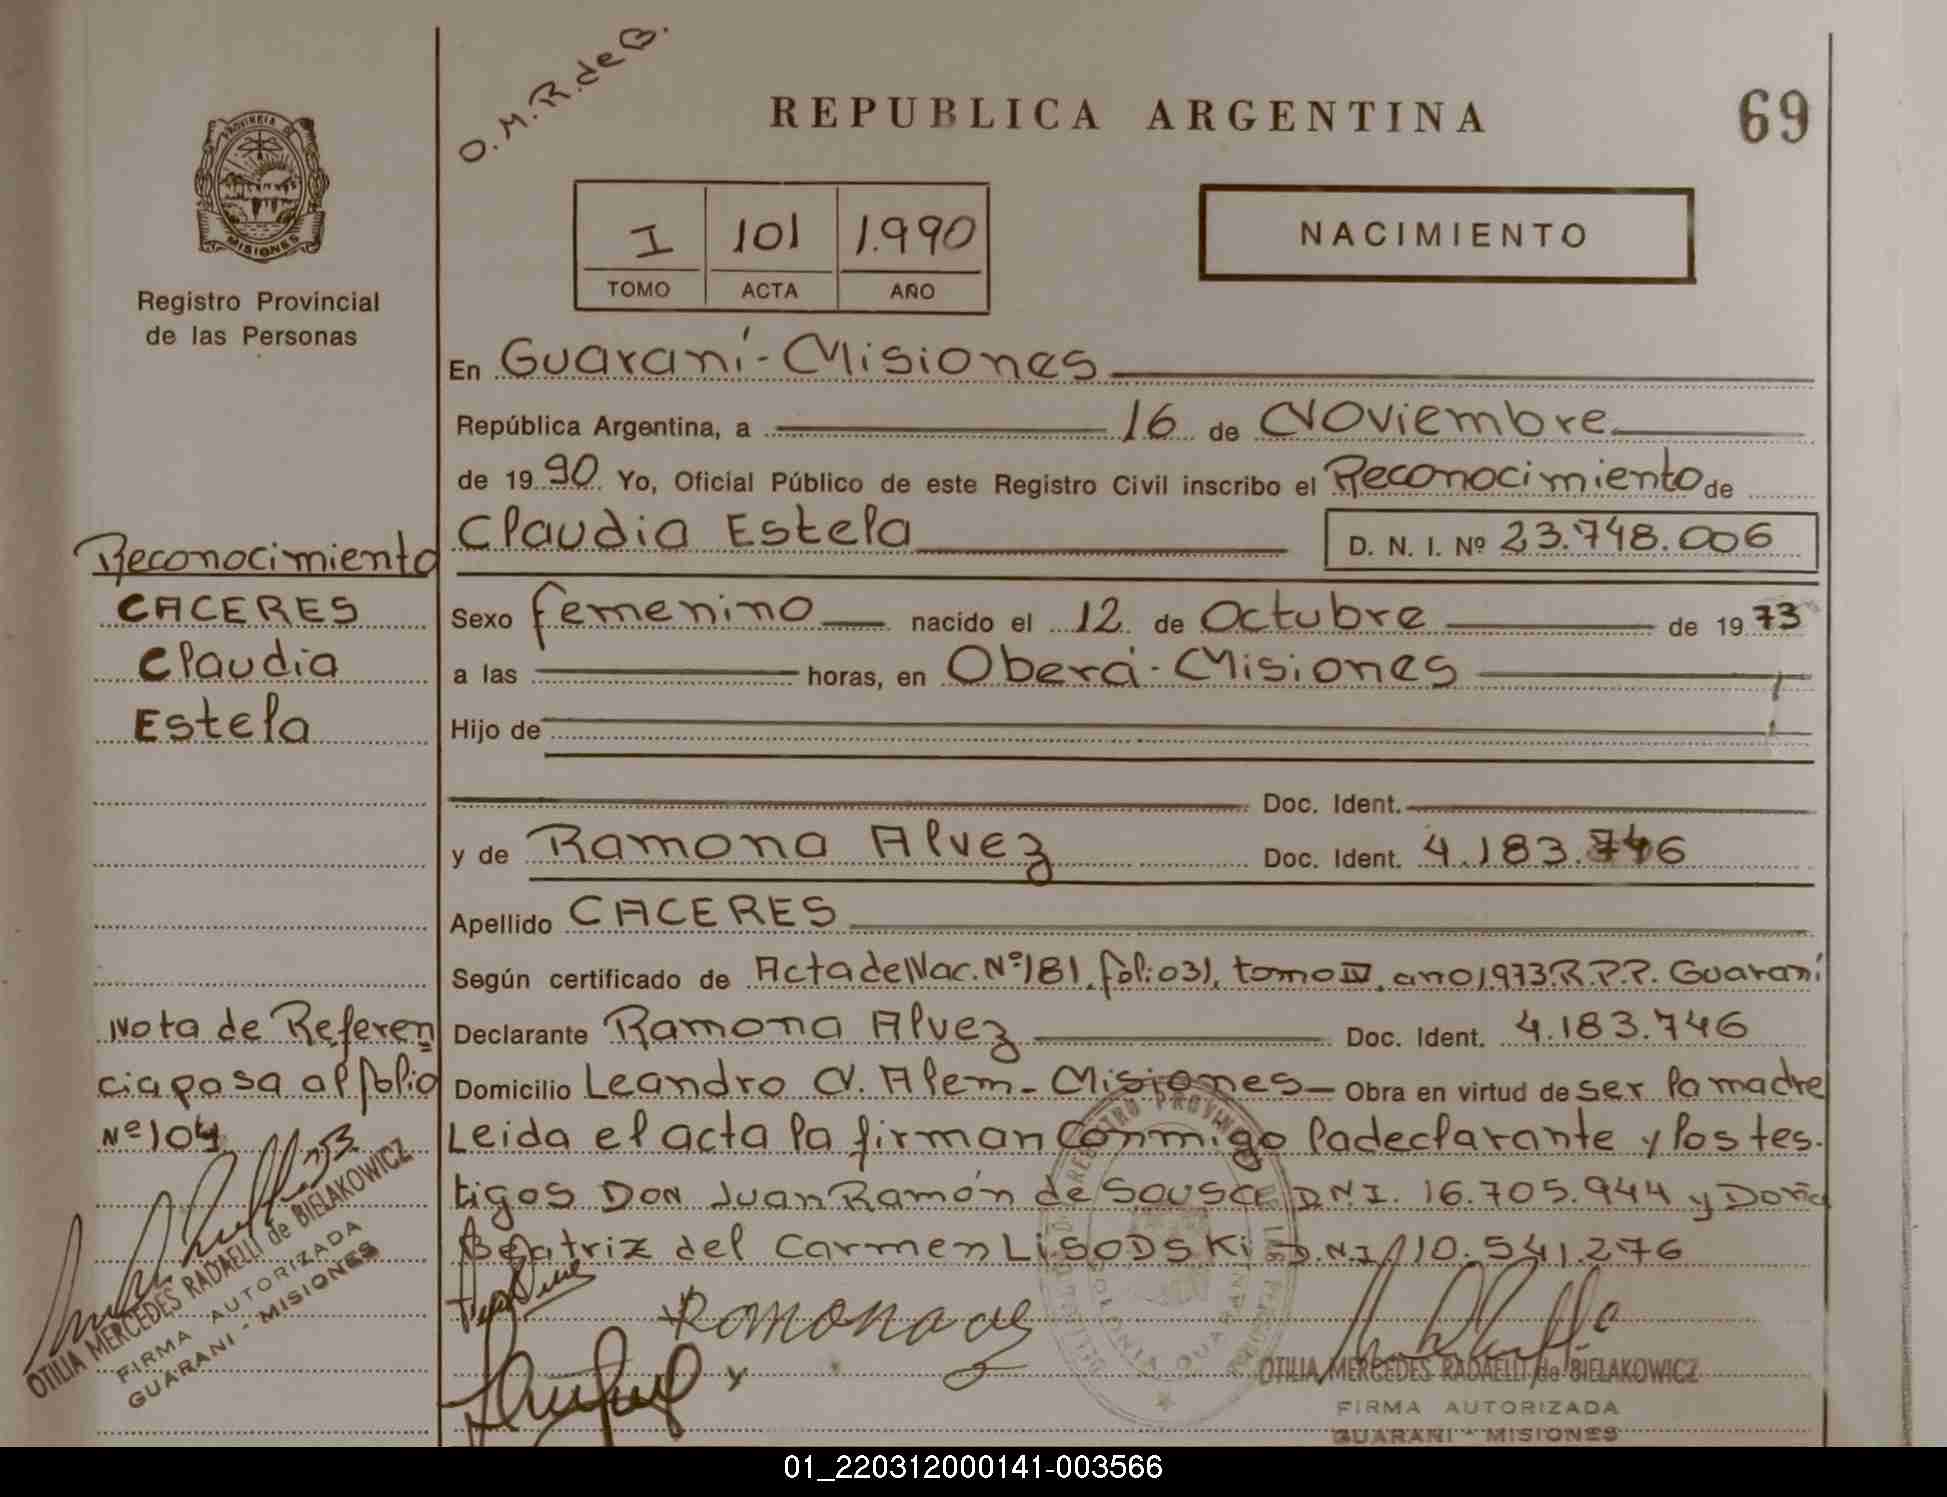 O.M.R. de B.
REPUBLICA ARGENTINA
69
PROVINCIA DE
MISIONES
Registro Provincial
de las Personas
I 101 1.990
TOMO ACTA AÑO
NACIMIENTO
En Guaraní - Misiones
República Argentina, a 16 de Noviembre
de 1990 Yo, Oficial Público de este Registro Civil inscribo el Reconocimiento de
Claudia Estela D. N. I. Nº 23.748.006
Sexo femenino nacido el 12 de Octubre de 1973
a las horas, en Oberá - Misiones
Hijo de
Doc. Ident.
y de Ramona Alvez Doc. Ident. 4.183.746
Apellido CACERES
Según certificado de Acta de Nac. Nº 181, foli: 031, tomo IV, ano 1.973 R.P.P. Guaraní
Declarante Ramona Alvez Doc. Ident. 4.183.746
Domicilio Leandro N. Alem - Misiones - Obra en virtud de ser la madre
Leida el acta la firman conmigo la declarante y los tes-
tigos Don Juan Ramón de Sousa D.N.I. 16.705.944 y Doña
Beatriz del Carmen LISODSKI D.N.I. 10.541.276
Reconocimiento
CACERES
Claudia
Estela
Nota de Referen
cia pasa al folio
Nº 104
OTILIA MERCEDES RADAELLI de BIELAKOWICZ
FIRMA AUTORIZADA
GUARANI - MISIONES
REGISTRO PROVINCIAL DE LAS PERSONAS
COLONIA GUARANI
OTILIA MERCEDES RADAELLI de BIELAKOWICZ
FIRMA AUTORIZADA
GUARANI - MISIONES
01_220312000141-003566